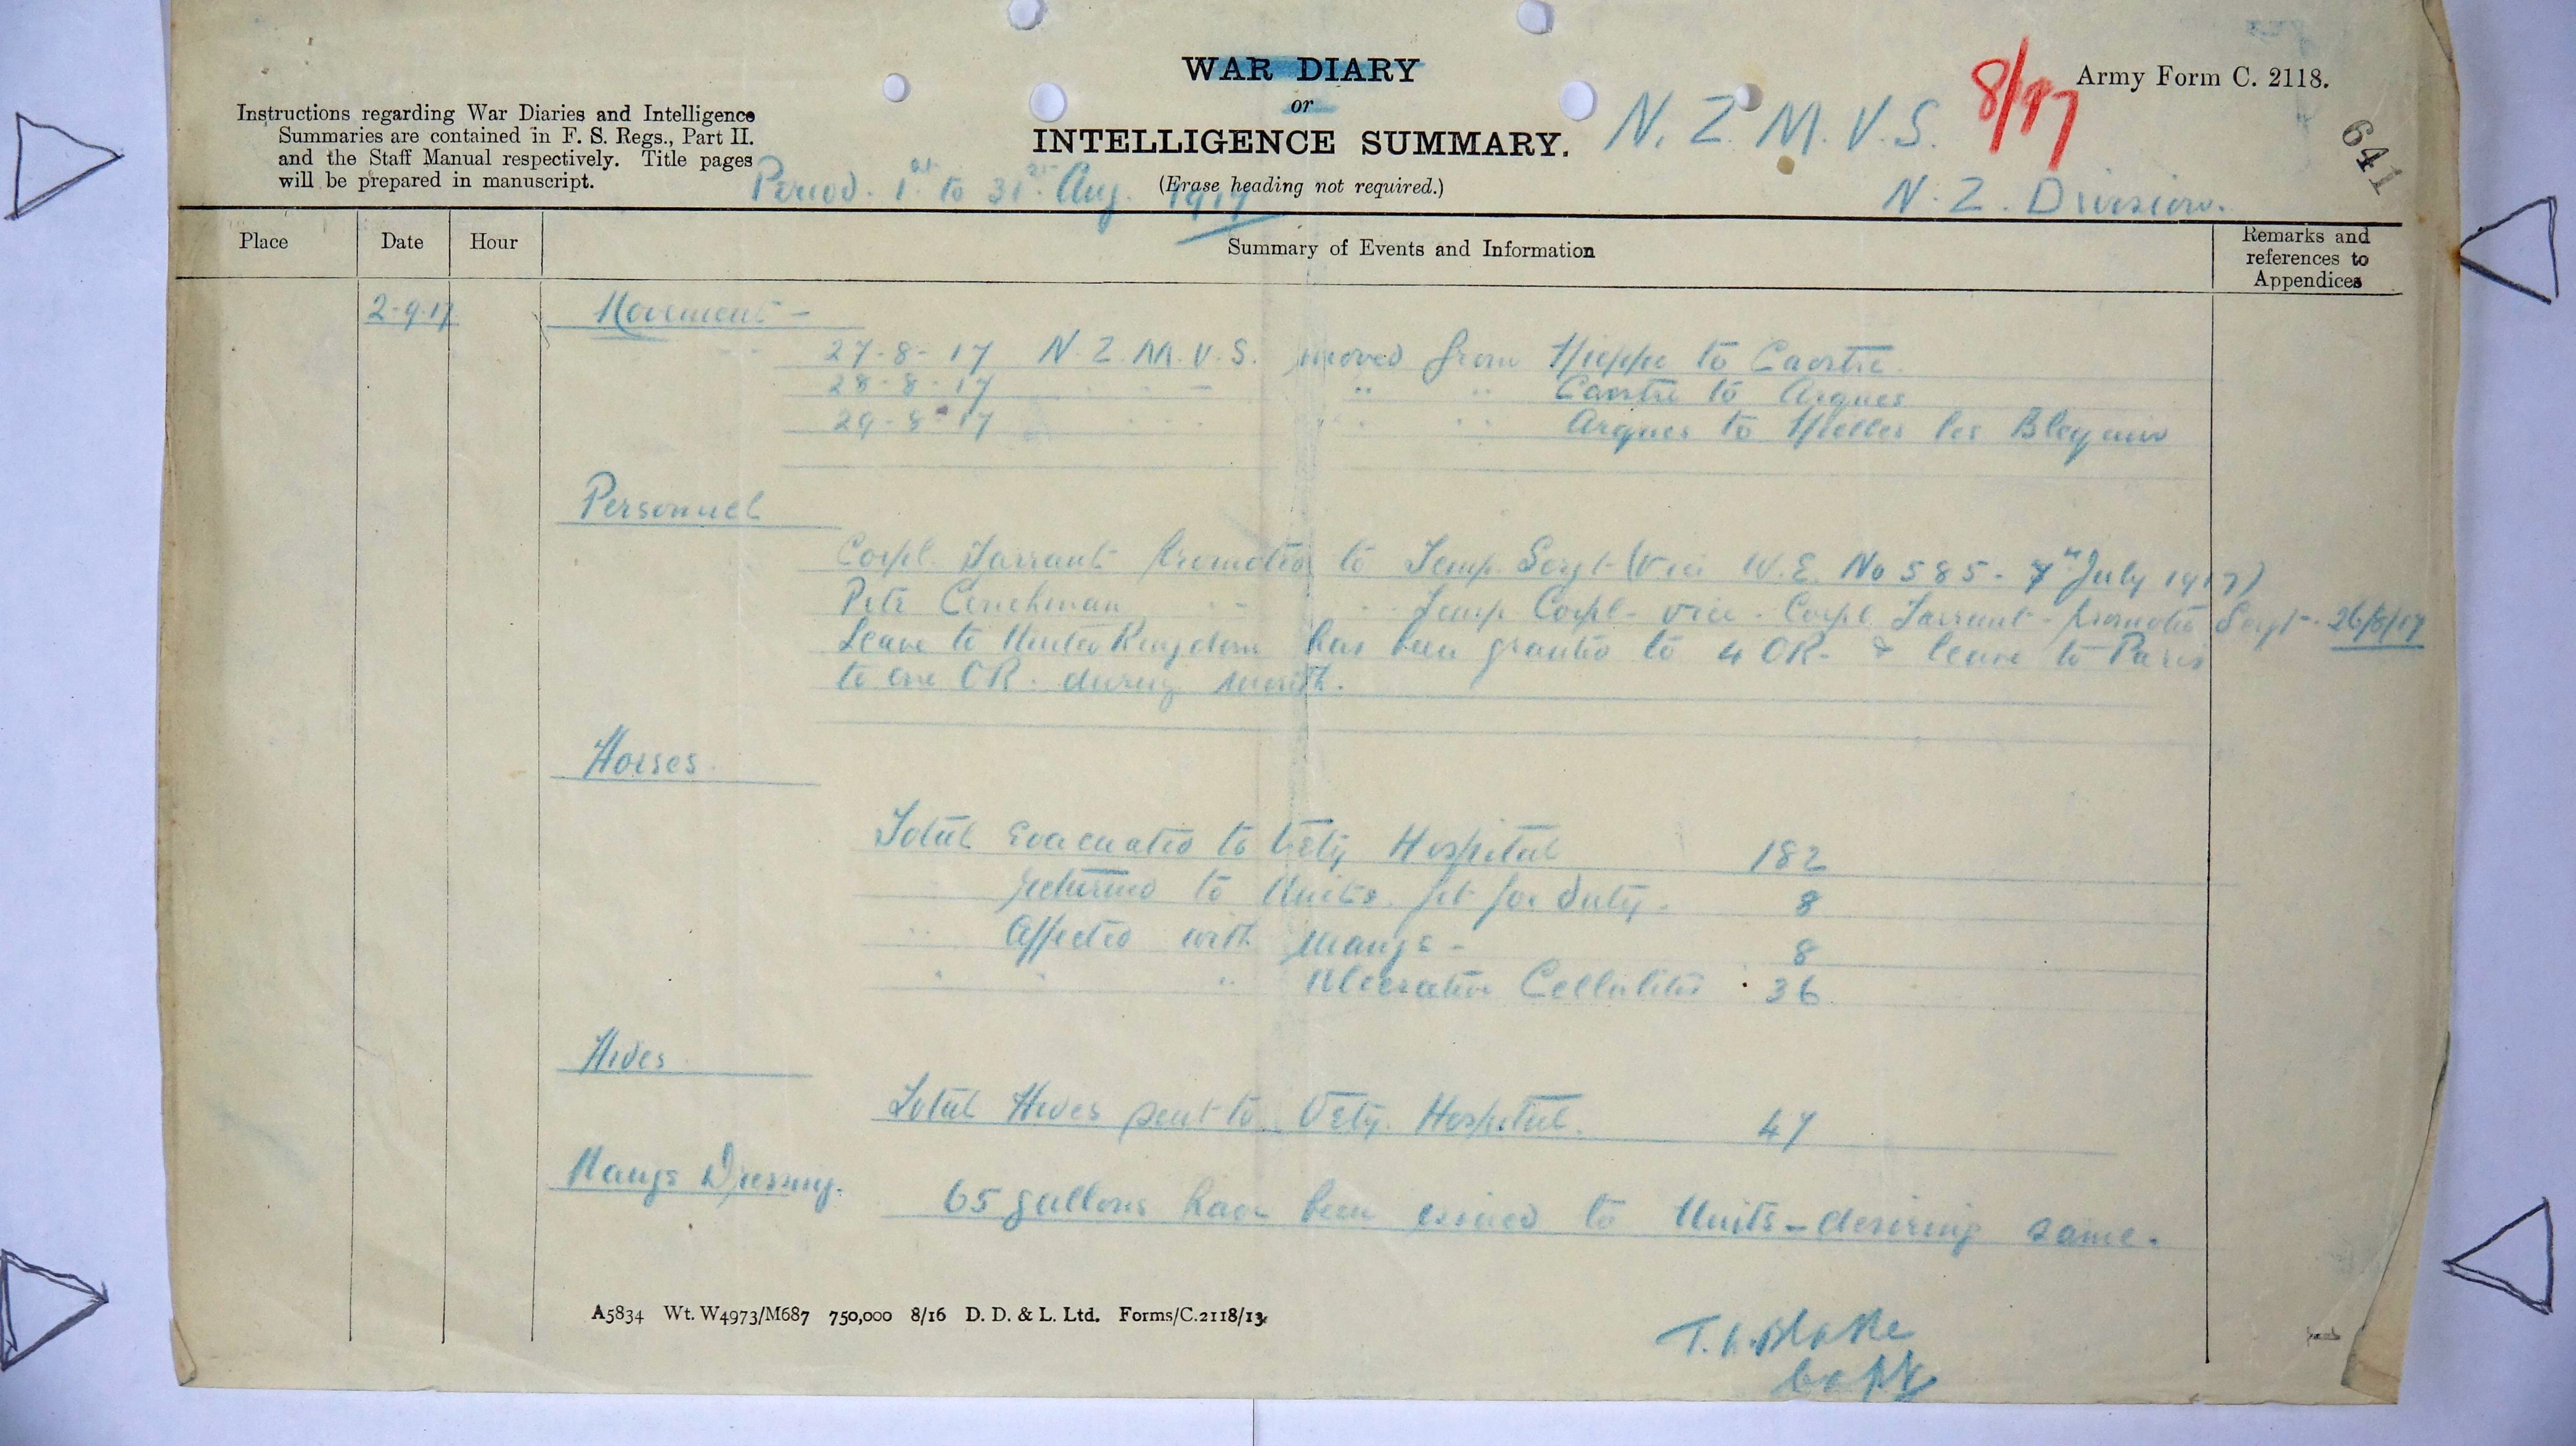 WAR DIARY
or
INTELLIGENCE SUMMARY.
(Erase heading not required.)
Army Form C. 2118.
N. Z. M. V. S.
8/17
641
N. Z. Division.
Instructions regarding War Diaries and Intelligence
Summaries are contained in F. S. Regs., Part II.
and the Staff Manual respectively. Title pages
will be prepared in manuscript.
Period. 1st to 31st Aug. 1917
Place Date Hour Summary of Events and Information Remarks and references to Appendices
2-9-17 Movement -
27-8-17 N. Z. M. V. S. moved from Nieppe to Caestre.
28-8-17 " " Caestre to Arques
29-8-17 " " Arques to Nielles les Blequin
Personnel
Corpl. Tarrant promoted to Temp. Sergt (Vice W.E. No 585 - 7th July 1917)
Pte " Temp Corpl - vice - Corpl Tarrant - promoted Sergt - 26/8/17
Leave to United Kingdom has been granted to 4 OR - & leave to Paris
to one OR. during month.
Horses
Total Evacuated to Vety Hospital 182
returned to Units fit for duty - 8
" Affected with Mange - 8
" " " Ulcerative Cellulitis 36
Hides
Total Hides sent to Vety. Hospital. 47
Mange Dressing. 65 gallons have been issued to Units - desiring same.
A5834 Wt. W4973/M687 750,000 8/16 D. D. & L. Ltd. Forms/C.2118/13.
Blake